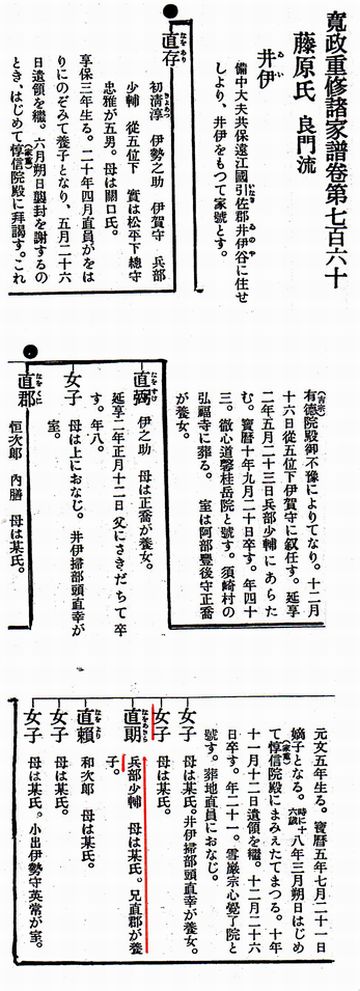 寛政重修諸家譜卷第七百六十
藤原氏 良門流
井伊
ゐい
備中大夫共保遠江國引佐郡井伊谷に住せ
しより、井伊をもつて家號とす。
直存
なをあり
初清淳 伊勢之助 伊賀守 兵部
少輔 從五位下 實は松平下總守
忠雅が五男。母は關口氏。
享保三年生る。二十年四月直員がをは
りにのぞみて養子となり、五月二十六
日遺領を繼。六月朔日襲封を謝するの
とき、はじめて惇信院殿に拜謁す。これ
(家重)
有德院殿御不豫によりてなり。十二月
(吉宗)
十六日從五位下伊賀守に叙任す。延享
二年五月二十三日兵部少輔にあらた
む。寶曆十年九月二十日卒す。年四十
三。徹心道馨桂岳院と號す。須崎村の
弘福寺に葬る。 室は阿部豐後守正喬
が養女。
直弼
伊之助 母は正喬が養女。
延享二年正月十二日父にさきだちて卒
す。年八。
女子
母は上におなじ。井伊掃部頭直幸が
室。
直郡
恒次郎 内膳 母は某氏。
元文五年生る。寶曆五年七月二十一日
嫡子となる。時に十六歲 八年三月朔日はじめ
て惇信院殿にまみえたてまつる。十年
(家重)
十一月十二日遺領を繼。十二月二十六
日卒す。年二十一。雪巖宗心覺了院と
號す。葬地直員におなじ。
女子
母は某氏。井伊掃部頭直幸が養女。
女子
母は某氏。
直朗
なをあきら
兵部少輔 母は某氏。兄直郡が養
子。
直賴
和次郎 母は某氏。
女子
母は某氏。
女子
母は某氏。小出伊勢守英常が室。